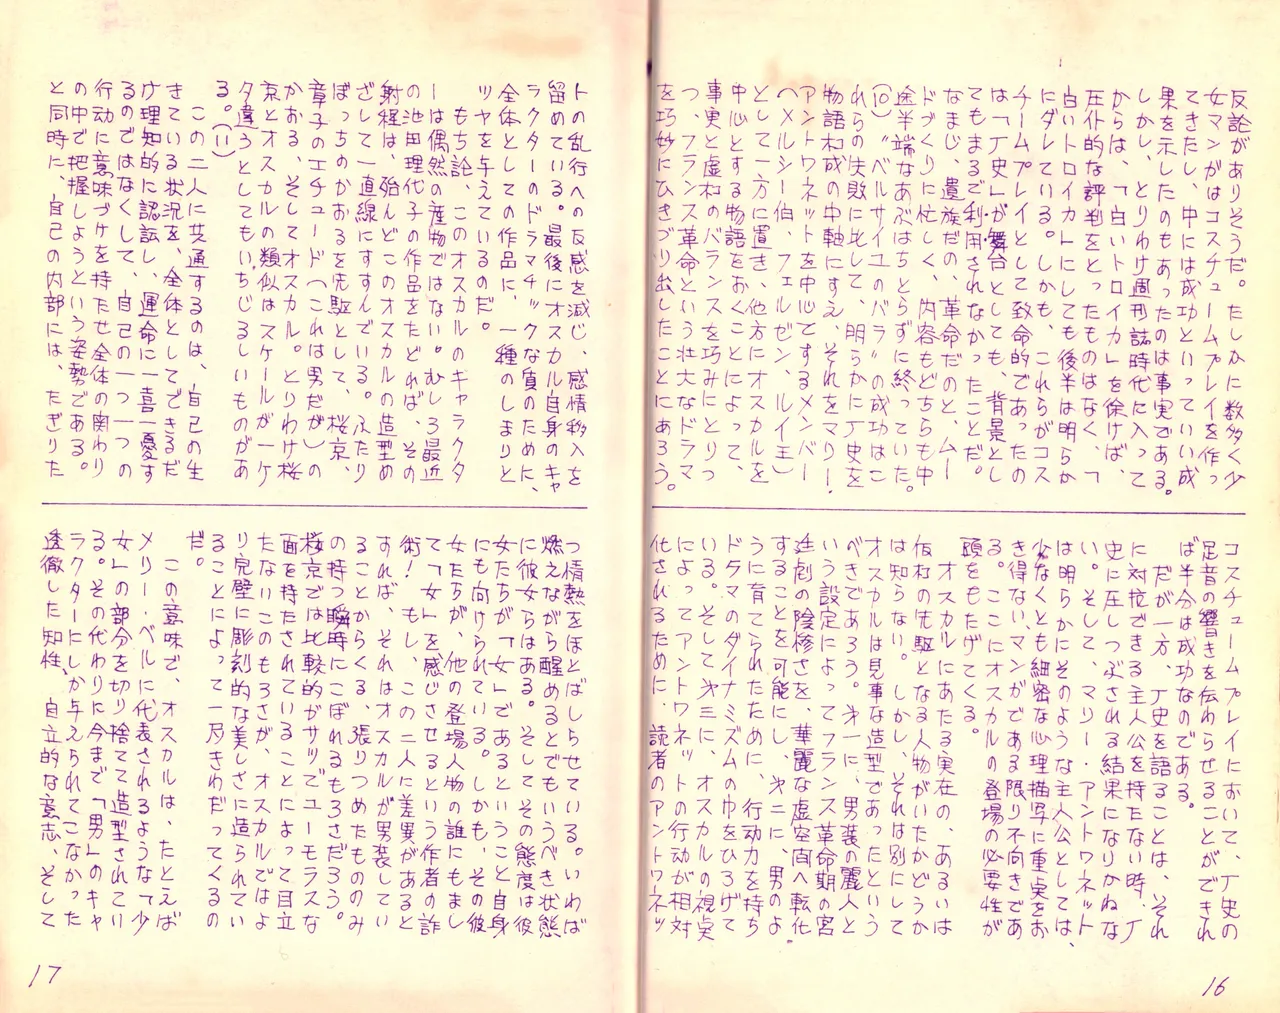 反論がありそうだ。たしかに数多く少
女マンガはコスチュームプレイを作っ
てきたし、中には成功といっていい成
果を示したのもあったのは事実である。
しかし、とりわけ週刊誌時代に入って
からは、「白いトロイカ」を徐けば、
圧仆的な評判をとったものはなく、「
白いトロイカ」にしても後半は明らか
にダレている。しかも、これらがコス
チームプレイとして致命的であったの
は「丁史」が舞台としても、背景とし
てもまるで利用されなかったことだ。
なまじ、遺族だの、革命だのと、ムー
ドづくりに忙しく、内容もどちらも中
途半端なあぶはちとらずに終っていた。
(10)〝ベルサイユのバラ〟の成功はこ
れらの失敗に比して、明らかに丁史を
物語枸成の中軸にすえ、それをマリー・
アントワネットを中心でするメンバー
(メルシー伯、フェルゼン、ルイ王)
として一方に置き、他方にオスカルを
中心とする物語をおくことによって、
事実と虚枸のバランスを巧みにとりつ
つ、フランス革命という壮大なドラマ
を巧妙にひきづり出したことにあろう。
コスチュームプレイにおいて、丁史の
足音の響きを伝わらせることができれ
ば半分は成功なのである。
だが一方、丁史を語ることは、それ
に対抗できる主人公を持たない時、丁
史に圧しつぶされる結果になりかねな
い。そして、マリー・アントワネット
は明らかにそのような主人公としては、
少なくとも細密な心理描写に重臭をお
き得ないマンガである限り不向きであ
る。ここにオスカルの登場の必要性が
頭をもたげてくる。
オスカルにあたる実在の、あるいは
仮枸の先駆となる人物がいたかどうか
は知らない。しかし、それは別にして
オスカルは見事な造型であったという
べきであろう。才一に、男装の麗人と
いう設定によってフランス革命期の宮
廷劇の陰惨さを、華麗な虚空間へ転化
することを可能にし、才二に、男のよ
うに育てられたために、行動力を持ち
ドラマのダイナミズムの巾をひろげて
いる。そして才三に、オスカルの視臭
によってアントワネットの行動が相対
化されるために、読者のアントワネッ
16
トの乱行への反感を減じ、感情移入を
留めている。最後にオスカル自身のキャ
ラクターのドラマチックな質のために、
全体としての作品に、一種のしまりと
ツヤを与えているのだ。
もち論、このオスカルのキャラクタ
ーは偶然の産物ではない。むしろ最近
の池田理代子の作品をたどれば、その
射程は、殆んどこのオスカルの造型め
ざして一直線にすすんでいる。ふたり
ぼっちのかおるを先駆として、桜京、
章子のエチュード(これは男だが)の
かおる、そしてオスカル。とりわけ桜
京とオスカルの類似はスケールが一ケ
タ違うとしてもいちじるしいものがあ
る。(11)
この二人に共通するのは、自己の生
きている状況を、全体としてできるだ
け理知的に認訟し、運命に一喜一憂す
るのではなくして、自己の一つ一つの
行動に意味づけを持たせ全体の関わり
の中で把握しようという姿勢である。
と同時に、自己の内部には、たぎりた
つ情熱をほとばしらせている。いわば
燃えながら醒めるとでもいうべき状態
に彼女らはある。そしてその態度は彼
女たちが「女」であるということ自身
にも向けられている。しかも、その彼
女たちが、他の登場人物の誰にもまし
て「女」を感じさせるという作者の詐
術! もし、この二人に差異があると
すれば、それはオスカルが男装してい
ることからくる、張りつめたもののみ
の持つ瞬時にこぼれるもろさだろう。
桜京では比較的がサツでユーモラスな
面を持たされていることによって目立
たないこのもろさが、オスカルではよ
り完壁に彫刻的な美しさに造られてい
ることによって一層きわだってくるの
だ。
この意味で、オスカルは、たとえば
メリー・ベルに代表されるような「少
女」の部分を切り捨てて造型されてい
る。その代わりに今まで「男」のキャ
ラクターにしか与えられてこなかった
透徹した知性、自立的な意志、そして
17